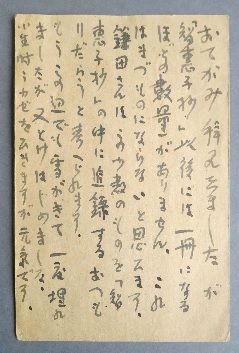 おてがみ拝見しましたが
「智恵子抄」以後には一冊になる
ほどの数量がありません、これ
はまづものにならないと思ひます、
鎌田さんはこの少数のものを「智
恵子抄」の中に追録するおつも
りだらうと考へられます。
もうこの辺でも雪がきて一度埋れ
ましたが又とけはじめました、
小生時々かぜ
元気です、